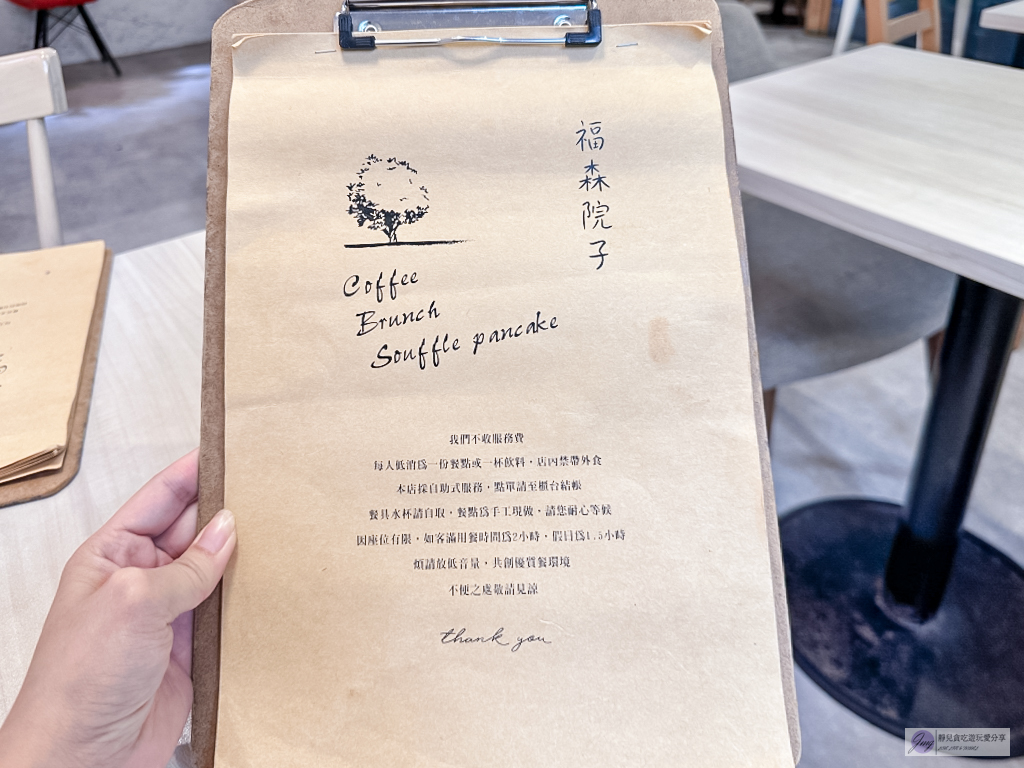 福森院子
Coffee
Brunch
Souffle pancake
我們不收服務費
每人低消為一份餐點或一杯飲料，店內禁帶外食
本店採自助式服務，點單請至櫃台結帳
餐具水杯請自取，餐點為手工現做，請您耐心等候
因座位有限，如客滿用餐時間為2小時，假日為1.5小時
煩請放低音量，共創優質餐環境
不便之處敬請見諒
thank you
靜兒貪吃遊玩愛分享